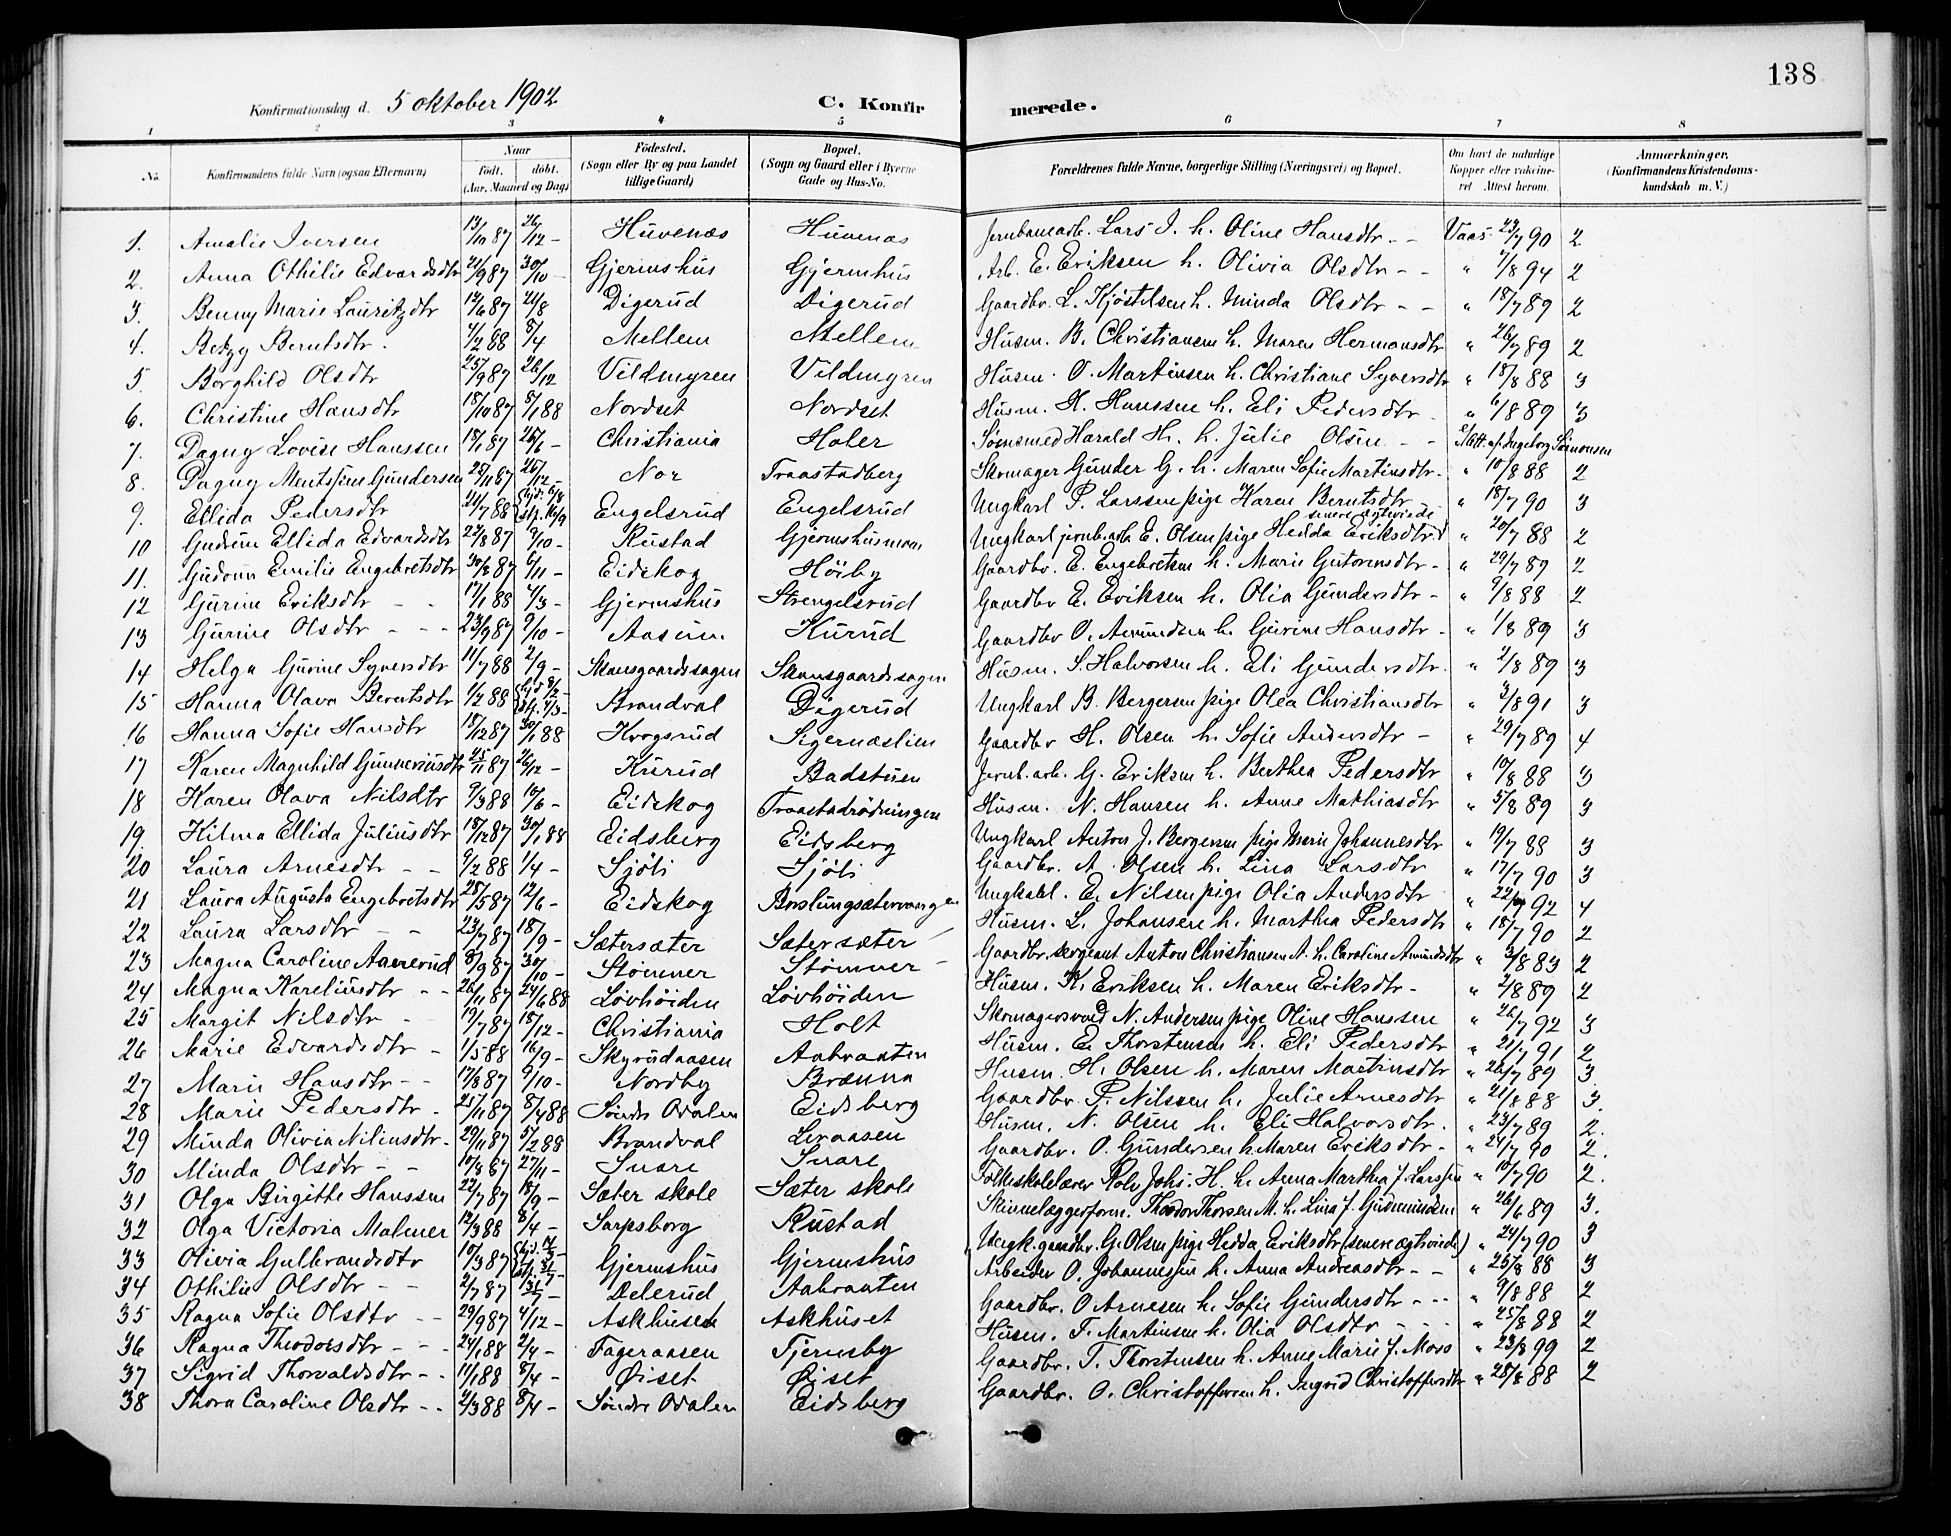 138
Konfirmationsdag d. 5 oktober 1902 C. Konfirmerede.
1 2 3 4 5 6 7 8
No. Konfirmandens fulde Navn (ogsaa Efternavn) Naar født. døbt. (Aar, Maaned og Dag) Födested. (Sogn eller By og paa Landet tillige Gaard) Bopæl. (Sogn og Gaard eller i Byerne Gade og Hus-No. Forældrenes fulde Navne, borgerlige Stilling (Næringsvei) og Bopæl. Om havt de naturlige Kopper eller vaccineret Attest herom. Anmærkninger. (Konfirmandens Kristendomskundskab m. V.)
1. Amalie Iversen 13/10 87 26/12 - Huvenæs Huvenæs Jernbanearb. Lars I. h. Oline Hansdtr. - - 23/7 90 2
2. Anna Othilie Edvardsdtr 21/9 87 30/10 - Gjermshus Gjermhus Arb. E. Eriksen h. Olivia Olsdtr - - " 7/8 94 2
3. Benny Marie Lauritzdtr 12/6 87 21/8 Digerud Digerud Gaardbr. L. Kjöstelsen h. Minda Olsdtr - - " 18/7 89 2
4. Betzy Berntsdtr. 4/2 88 8/4 Mellem Mellem Husm. B. Christiansen h. Maren Hermansdtr " 26/7 89 2
5. Borghild Olsdtr 25/9 87 26/12 Vildmyren Vildmyren Husm. O. Martinsen h. Christiane Syversdtr " 18/8 88 3
6. Christine Hansdtr 18/10 87 8/1 88 Nordset Nordset Husm. H. Hanssen h. Eli Pedersdtr - " 6/8 89 3
7. Dagny Lovise Hanssen 18/1 87 26/6 - Christiania Holer Sømsmed Harald H. h. Julie Olsen - - Att. af Ingeborg Simonsen
8. Dagny Gundersen 25/11 87 26/12 - Nor Traastadberg Skomager Gunder G. h. Maren Sofie Martinsdtr. " 10/8 88 2
9. Ellida Pedersdtr 21/7 88 Engelsrud Engelsrud Ungkarl P. Larssen pige Karen Berntsdtr - " 18/7 90 3
10 Gudrun Ellida Edvardsdtr 22/8 87 9/10 - Rustad Gjermshusmoen Ungkarl jernb.arb. E. Olsen pige Hedda Eriksdtr senere ægteviede " 20/7 88 2
11. Gudrun Emilie Engebretsdtr 30/8 87 6/11 - Eidskog Höiby Gaardbr. E. Engebretsen h. Marie Gutormsdtr - " 29/7 89 2
12 Gurine Eriksdtr - - 17/1 88 4/3 - Gjermshus Strengelsrud Gaardbr E. Eriksen h. Olia Gundersdtr - " 9/8 88 2
13 Gurine Olsdtr - - - 23/9 87 9/10 - Aasum Kurud Gaardbr O. Amundsen h. Gurine Hansdtr - " 1/8 89 3
14 Helga Gurine Syversdtr 11/7 88 2/9 - Skansgaardssagen Skansgaardssagen Husm. S. Halvorsen h. Eli Gundersdtr. " 2/8 89 3
15 Hanna Olava Berntsdtr 1/2 88 Brandval Digerud Ungkarl B. Bergersen pige Olea Christiansdtr " 3/8 91 3
16 Hanna Sofie Hansdtr 18/12 87 30/1 88 Krogsrud Sigernæslien Gaardbr H. Olsen h. Sofie Andersdtr - " 29/7 89 4
17 Karen Magnhild Gunneriusdtr 25/11 87 26/12 - Kurud Badstuen Jernb.arb. G. Eriksen h. Berthea Pedersdtr " 10/8 88 3
18 Karen Olava Nilsdtr 9/3 88 10/6 - Eidskog Traastadrödningen Husm. N. Hansen h. Anne Mathiasdtr " 5/8 89 3
19. Hilma Ellida Juliusdtr 18/12 87 30/1 88 Eidsberg Eidsberg Ungkarl Anton J. Bergersen pige Marie Johannesdtr " 19/7 88 3
20 Laura Arnesdtr - - 9/2 88 1/4 - Sjöli Sjöli Gaardbr. A. Olsen h. Lina Larsdtr " 17/7 90 3
21 Laura Augusta Engebretsdtr 25/5 87 12/6 - Eidskog Ungkarl E. Nilsen pige Olia Andersdtr " 22/7 92 4
22 Laura Larsdtr - - 23/7 87 18/9 - Sætersæter Sætersæter Husm. L. Johansen h. Marthea Pedersdtr " 18/7 90 2
23 Magna Caroline Aamerud 8/9 87 30/10 - Stömner Stömner Gaardbr. sergeant Anton Christiansen A. h. Caroline Amundsdtr " 3/8 83 2
24 Magna Kareliusdtr - - 26/11 87 24/6 88 Lövhöiden Lövhöiden Husm. K. Eriksen h. Maren Eriksdtr - " 2/8 89 2
25 Margit Nilsdtr - 19/7 87 18/12 - Christiania Holt Skomagersvend N. Andersen pige Oline Hanssen " 26/7 92 3
26 Marie Edvardsdtr - 1/5 88 16/9 - Skyrudaasen Aabraaten Husm. E. Thorstensen h. Eli Pedersdtr " 21/7 91 2
27 Marie Hansdtr - - 12/8 87 9/10 - Nordby Brænna Husm. H. Olsen h. Maren Martinsdtr " 26/7 89 3.
28 Marie Pedersdtr. 25/11 87 8/4 88 Söndre Odalen Eidsberg Gaardbr P. Nilssen h. Julie Arnesdtr " 21/8 88 3.
29 Minda Olivia Niliusdtr. 29/11 87 5/2 88 Brandval Leraasen Husm. N. Olsen h. Eli Halvorsdtr. " 23/7 89 2.
30 Minda Olsdtr - - 10/8 87 27/11 - Snare Snare Gaardbr. O. Gundersen h. Maren Eriksdtr - " 24/7 90 2.
31 Olga Birgitte Hanssen 22/7 87 18/9 - Sæter skole Sæter skole Folkeskolelærer Rolv Johs. H. h. Anna Marthea f. Larssen " 10/7 90 2.
32 Olga Victoria Malmer 12/3 88 8/4 - Sarpsborg Rustad Skinnelæggerform. Theodor Thorsen M. h. Lina f. Gudmundsen " 26/6 89 3.
33 Olivia Gulbrandsdtr 10/3 87 Gjermshus Gjermshus Ungk. gaardbr. G. Olsen pige Hedda Eriksdtr (senere ægteviede) " 24/7 90 3
34 Othilie Olsdtr - - 2/7 87 31/7 - Delerud Aabraaten Arbeider O. Johannessen h. Anna Andreasdtr - - " 25/8 88 3
35 Ragna Sofie Olsdtr - - 29/9 87 4/12 - Askhuset Askhuset Gaardbr. O Arnesen h. Sofie Gundersdtr - - - " 9/8 88 2
36 Ragna Theodorsdtr - - - 24/1 88 2/4 - Fageraasen Tjernsby Husm. T. Martinsen h. Olia Olsdtr - - - " 25/8 88 2
37 Sigrid Thorvaldsdtr - - 11/1 88 8/4 - Øiset Øiset Gaardbr. T. Thorstensen h. Anne Marie f. Moss " 23/8 99 2
38 Thora Caroline Olsdtr - - 2/3 88 8/4 - Söndre Odalen Eidsberg Gaardbr. O. Christoffersen h. Ingrid Christoffersdtr " 28/8 88 2